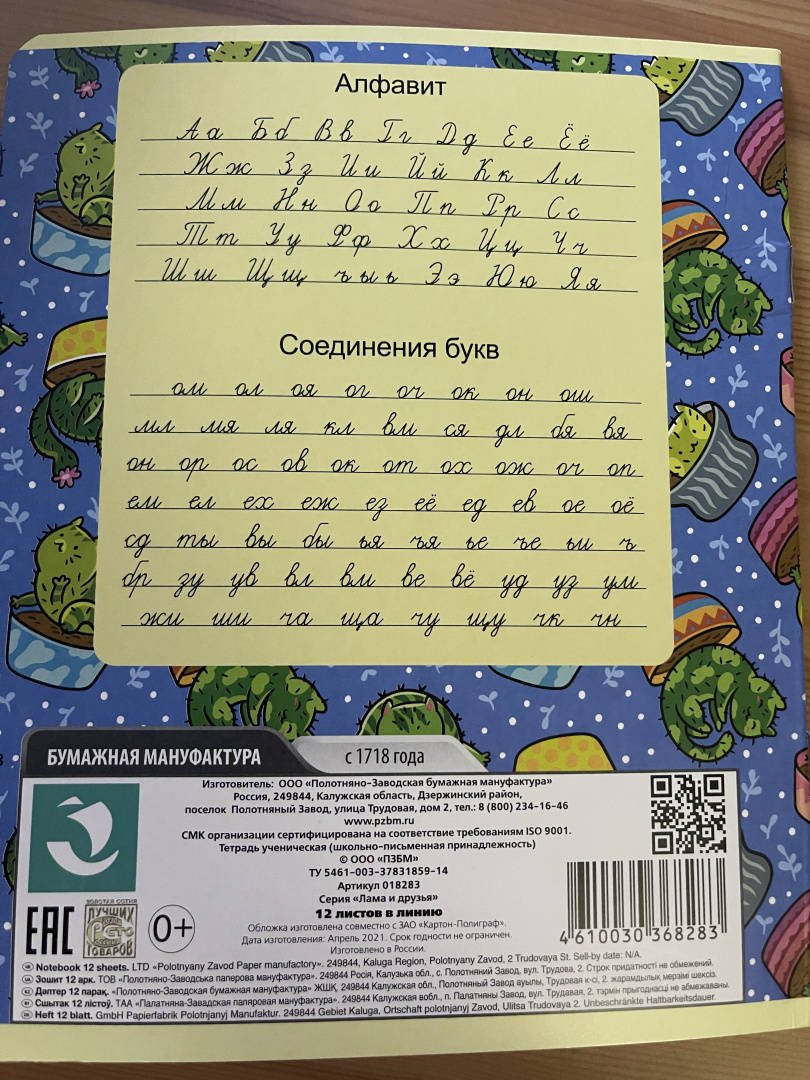 Алфавит
Аа Бб Вв Гг Дд Ее Ёё
Жж Зз Ии Йй Кк Лл
Мм Нн Оо Пп Рр Сс
Тт Уу Фф Хх Цц Чч
Шш Щщ ъ ы ь Ээ Юю Яя
Соединения букв
ом ол оя ог оч ок он ош
мл мя ля кл вм ся дл бя вя
он ор ос ов ок от ох ож оч оп
ем ел ех еж ез её ед ев ое оё
сд ты вы бы ья ъя ье ъе ьи ъ
бр зу ув вл вм ве вё уд уз ум
жи ши ча ща чу щу чк чн
БУМАЖНАЯ МАНУФАКТУРА с 1718 года
Изготовитель: ООО «Полотняно-Заводская бумажная мануфактура»
Россия, 249844, Калужская область, Дзержинский район,
поселок Полотняный Завод, улица Трудовая, дом 2, тел.: 8 (800) 234-16-46
www.pzbm.ru
СМК организации сертифицирована на соответствие требованиям ISO 9001.
Тетрадь ученическая (школьно-письменная принадлежность)
© ООО «ПЗБМ»
ТУ 5461-003-37831859-14
Артикул 018283
Серия «Лама и друзья»
12 листов в линию
Обложка изготовлена совместно с ЗАО «Картон-Полиграф».
Дата изготовления: Апрель 2021. Срок годности не ограничен.
Изготовлено в России.
EAC
ЗОЛОТАЯ СОТНЯ
ЛУЧШИХ
ТОВАРОВ
0+
4 610030 368283
Notebook 12 sheets. LTD «Polotnyany Zavod Paper manufactory». 249844, Kaluga Region, Polotnyany Zavod, 2 Trudovaya St. Sell-by date: N/A.
Зошит 12 арк. ТОВ «Полотняно-Заводська паперова мануфактура». 249844 Росія, Калузька обл., с. Полотняний Завод, вул. Трудова, 2. Строк придатності не обмежений.
Дәптер 12 парақ. «Полотняно-Заводская бумажная мануфактура» ЖШҚ, 249844 Калужская обл., Полотняный Завод ауылы, Трудовая к-сі, 2. жарамдылық мерзімі шексіз.
Сшытак 12 лістоў. ТАА «Палатняна-Завадская папяровая мануфактура». 249844 Калужская вобл., п. Палатняны Завод, вул. Трудавая, 2. тэрмін прыгоднасці не абмежаваны.
Heft 12 blatt. GmbH Papierfabrik Polotnjanyj Manufaktur. 249844 Gebiet Kaluga, Ortschaft polotnjanyj Zavod, Ulitsa Trudovaya 2. Unbeschränkte Haltbarkeitsdauer.